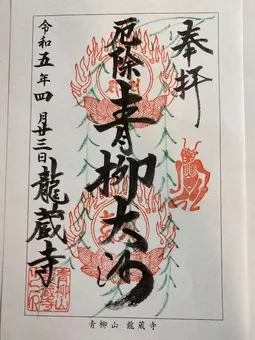 奉拝
厄除
青柳大師
令和五年四月廿三日
龍蔵寺
青柳山 龍蔵寺